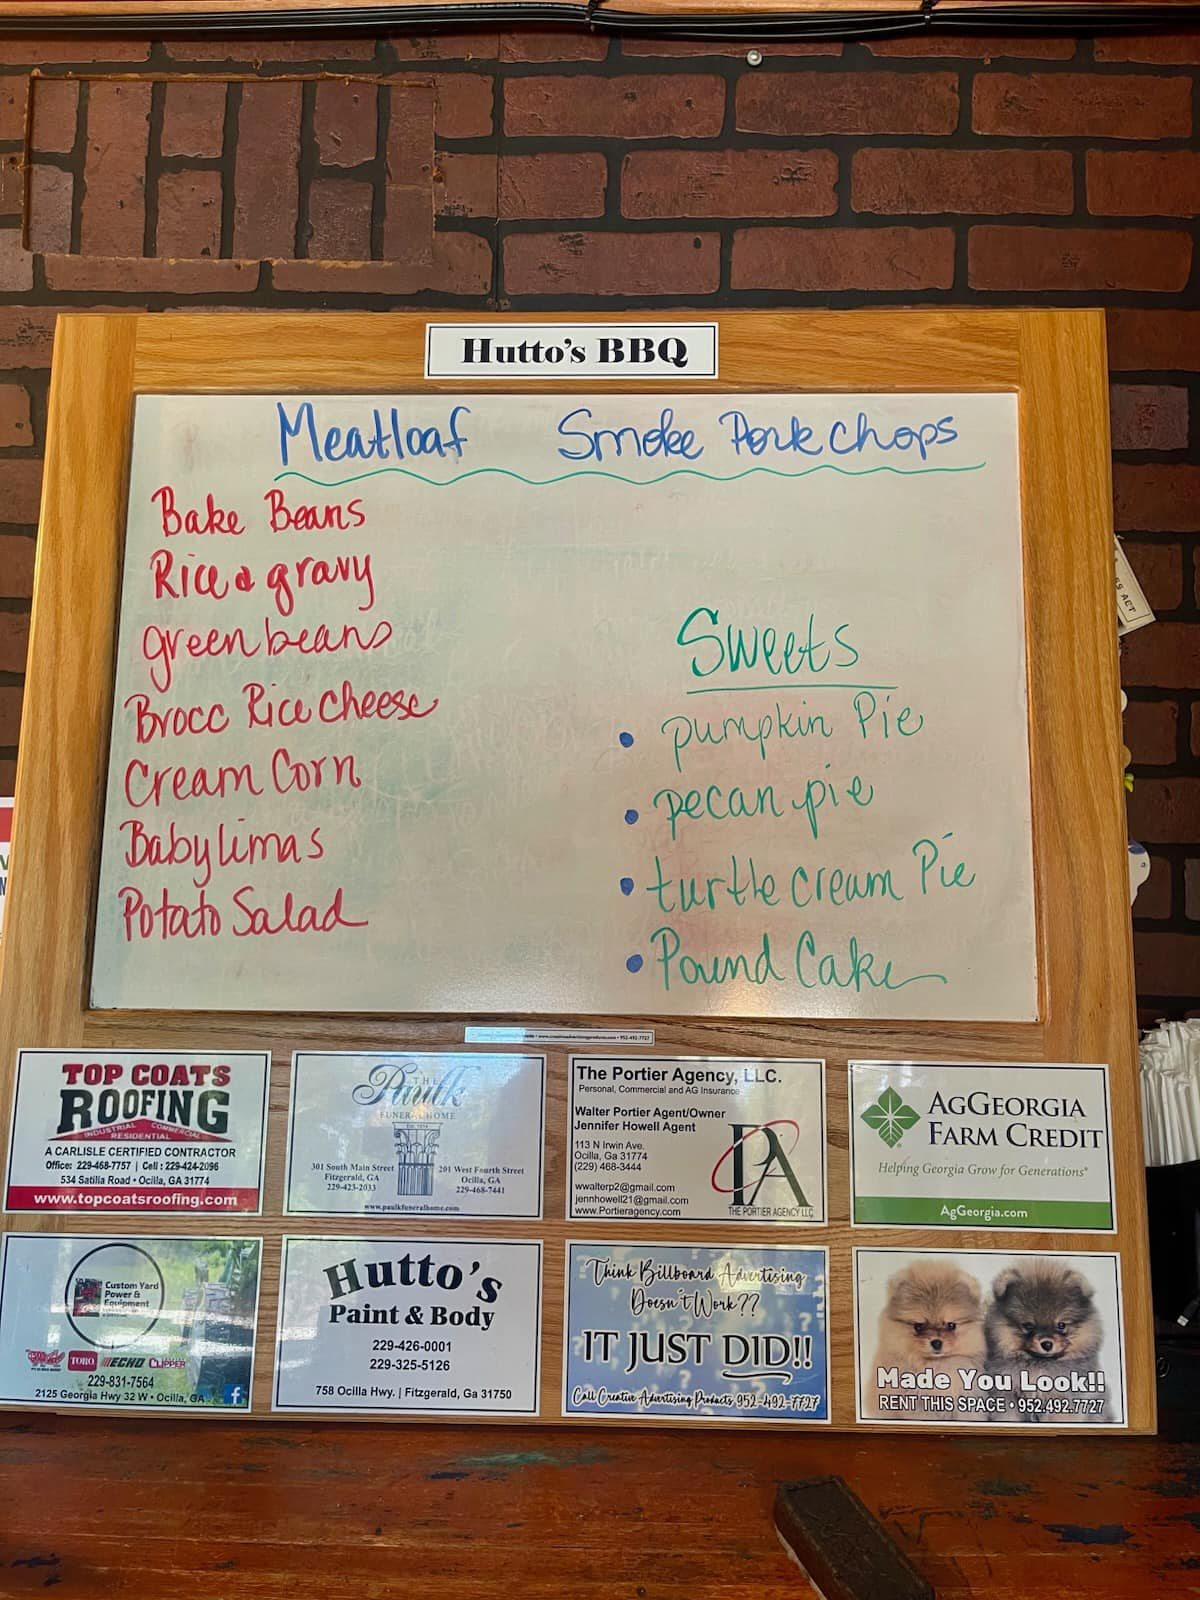 Hutto's BBQ
Meatloaf Smoke Pork Chops
Bake Beans
Rice & gravy
green beans
Brocc Rice Cheese
Cream Corn
Baby limas
Potato Salad
Sweets
• pumpkin Pie
• pecan pie
• turtle cream Pie
• Pound Cake
TOP COATS
ROOFING
INDUSTRIAL COMMERCIAL
RESIDENTIAL
A CARLISLE CERTIFIED CONTRACTOR
Office: 229-468-7757 | Cell : 229-424-2096
534 Satilla Road • Ocilla, GA 31774
www.topcoatsroofing.com
THE
Paulk
FUNERAL HOME
301 South Main Street
Fitzgerald, GA
229-423-2033
201 West Fourth Street
Ocilla, GA
229-468-7441
www.paulkfuneralhome.com
The Portier Agency, LLC.
Personal, Commercial and AG Insurance
Walter Portier Agent/Owner
Jennifer Howell Agent
113 N Irwin Ave.
Ocilla, Ga 31774
(229) 468-3444
wwalterp2@gmail.com
jennhowell21@gmail.com
www.Portieragency.com
PA
THE PORTIER AGENCY LLC
AGGEORGIA
FARM CREDIT
Helping Georgia Grow for Generations®
AgGeorgia.com
Custom Yard
Power &
Equipment
TORO ECHO CLIPPER
229-831-7564
2125 Georgia Hwy 32 W • Ocilla, GA
f
Hutto's
Paint & Body
229-426-0001
229-325-5126
758 Ocilla Hwy. | Fitzgerald, Ga 31750
Think Billboard Advertising
Doesn't Work??
IT JUST DID!!
Call Creative Advertising Products 952-492-7727
Made You Look!!
RENT THIS SPACE • 952.492.7727